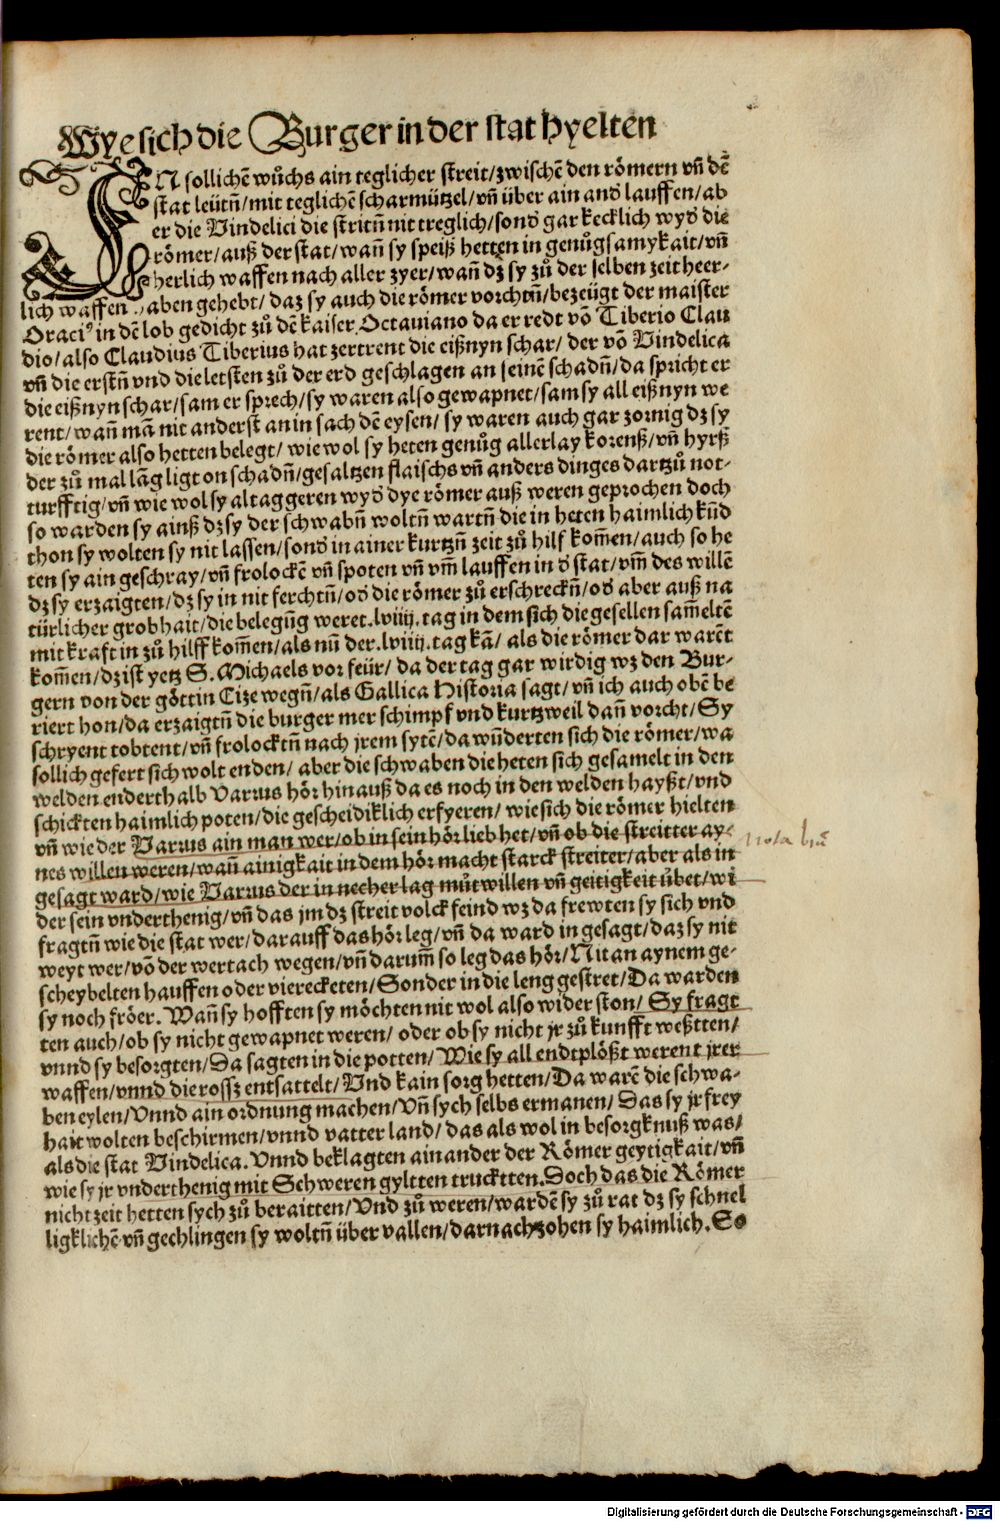 Wye sich die Burger in der stat hyelten
IN sollichē wůchs ain teglicher streit/zwischē den römern vn̄ dē
stat leütn̄/mit teglichē scharmützel/vn̄ über ain and̄ lauffen/ab
er die Vindelici die stritn̄ nit treglich/sond̄ gar kecklich wyd̄ die
römer/auß der stat/wan̄ sy speiß hetten in genůgsamykait/vn̄
herlich waffen nach aller zyer/wan̄ dz sy zů der selben zeit heer-
lich waffen haben gehebt/daz sy auch die römer vorchtn̄/bezeügt der maister
Oraciꝰ in dē lob gedicht zů dē kaiser Octauiano da er redt vō Tiberio Clau
dio/also Claudius Tiberius hat zertrent die eißnyn schar/ der vō Vindelica
vn̄ die erstn̄ vnd die letsten zů der erd geschlagen an seinē schadn̄/da spricht er
die eißnyn schar/sam er sprech/sy waren also gewapnet/sam sy all eißnyn we
rent/wan̄ mā nit anderst an in sach dē eysen/ sy waren auch gar zornig dz sy
die römer also hetten belegt/ wie wol sy heten genůg allerlay korenß/vn̄ hyrß
der zů mal lāg ligt on schadn̄/gesaltzen flaischs vn̄ anders dinges dartzů not-
turfftig/vn̄ wie wol sy al tag geren wyd̄ dye römer auß weren geprochen doch
so warden sy ainß dz sy der schwabn̄ woltn̄ wartn̄ die in heten haimlich kūd
thon sy wolten sy nit lassen/sond̄ in ainer kurtzn̄ zeit zů hilf kom̄en/auch so he
ten sy ain geschray/vn̄ frolockē vn̄ spoten vn̄ vm̄ lauffen in d̄ stat/vm̄ des willē
dz sy erzaigten/dz sy in nit ferchtn̄/od̄ die römer zů erschreckn̄/od̄ aber auß na
türlicher grobhait/die belegūg weret .lviiij. tag in dem sich die gesellen sam̄eltē
mit kraft in zů hilff kom̄en/als nū der .lviiij. tag kā/ als die römer dar warēt
kom̄en/dz ist yetz S. Michaels vor feür/ da der tag gar wirdig wz den Bur-
gern von der göttin Cize wegn̄/als Gallica Historia sagt/vn̄ ich auch obē be
riert hon/da erzaigtn̄ die burger mer schimpf vnd kurtzweil dan̄ vorcht/Sy
schryent tobtent/vn̄ frolocktn̄ nach jrem sytē/da wūderten sich die römer/wa
sollich gefert sich wolt enden/ aber die schwaben die heten sich gesamelt in den
welden enderthalb Varrus hör hinauß da es noch in den welden hayßt/vnd
schickten haimlich poten/die gescheidiklich erfyeren/ wie sich die römer hielten
vn̄ wie der Varrus ain man wer/ob in sein hör lieb het/vn̄ ob die streitter ay-
nes willen weren/wan̄ ainigkait in dem hör macht starck streiter/aber als in
gesagt ward/wie Varrus der in necher lag můtwillen vn̄ geitigkeit übet/wi
der sein vnderthenig/vn̄ das jm dz streit volck feind wz da frewten sy sich vnd
fragtn̄ wie die stat wer/darauff das hör leg/vn̄ da ward in gesagt/daz sy nit
weyt wer/vō der wertach wegen/vn̄ darum̄ so leg das hör/Nit an aynem ge-
scheybelten hauffen oder vierecketen/Sonder in die leng gestret/Da warden
sy noch fröer. Wan̄ sy hofften sy möchten nit wol also wider ston/Sy fragt
ten auch/ob sy nicht gewapnet weren/ oder ob sy nicht jr zů kunfft weßtten/
vnnd sy besorgten/Da sagten in die potten/Wie sy all endtplößt werent jrer
waffen/vnnd die rossz entsattelt/Vnd kain sorg hetten/Da warē die schwa-
ben eylen/Vnnd ain ordnung machen/Vn̄ sych selbs ermanen/Das sy jr frey
hait wolten beschirmen/vnnd vatter land/das als wol in besorgknuß was/
als die stat Vindelica. Vnnd beklagten ain ander der Römer geytigkait/vn̄
wie sy jr vnderthenig mit Schweren gyltten trucktten. Doch das die Römer
nicht zeit hetten sych zů beraitten/Vnd zů weren/wardē sy zů rat dz sy schnel
ligklichē vn̄ gechlingen sy woltn̄ über vallen/darnach zohen sy haimlich. So
nota
Digitalisierung gefördert durch die Deutsche Forschungsgemeinschaft - DFG